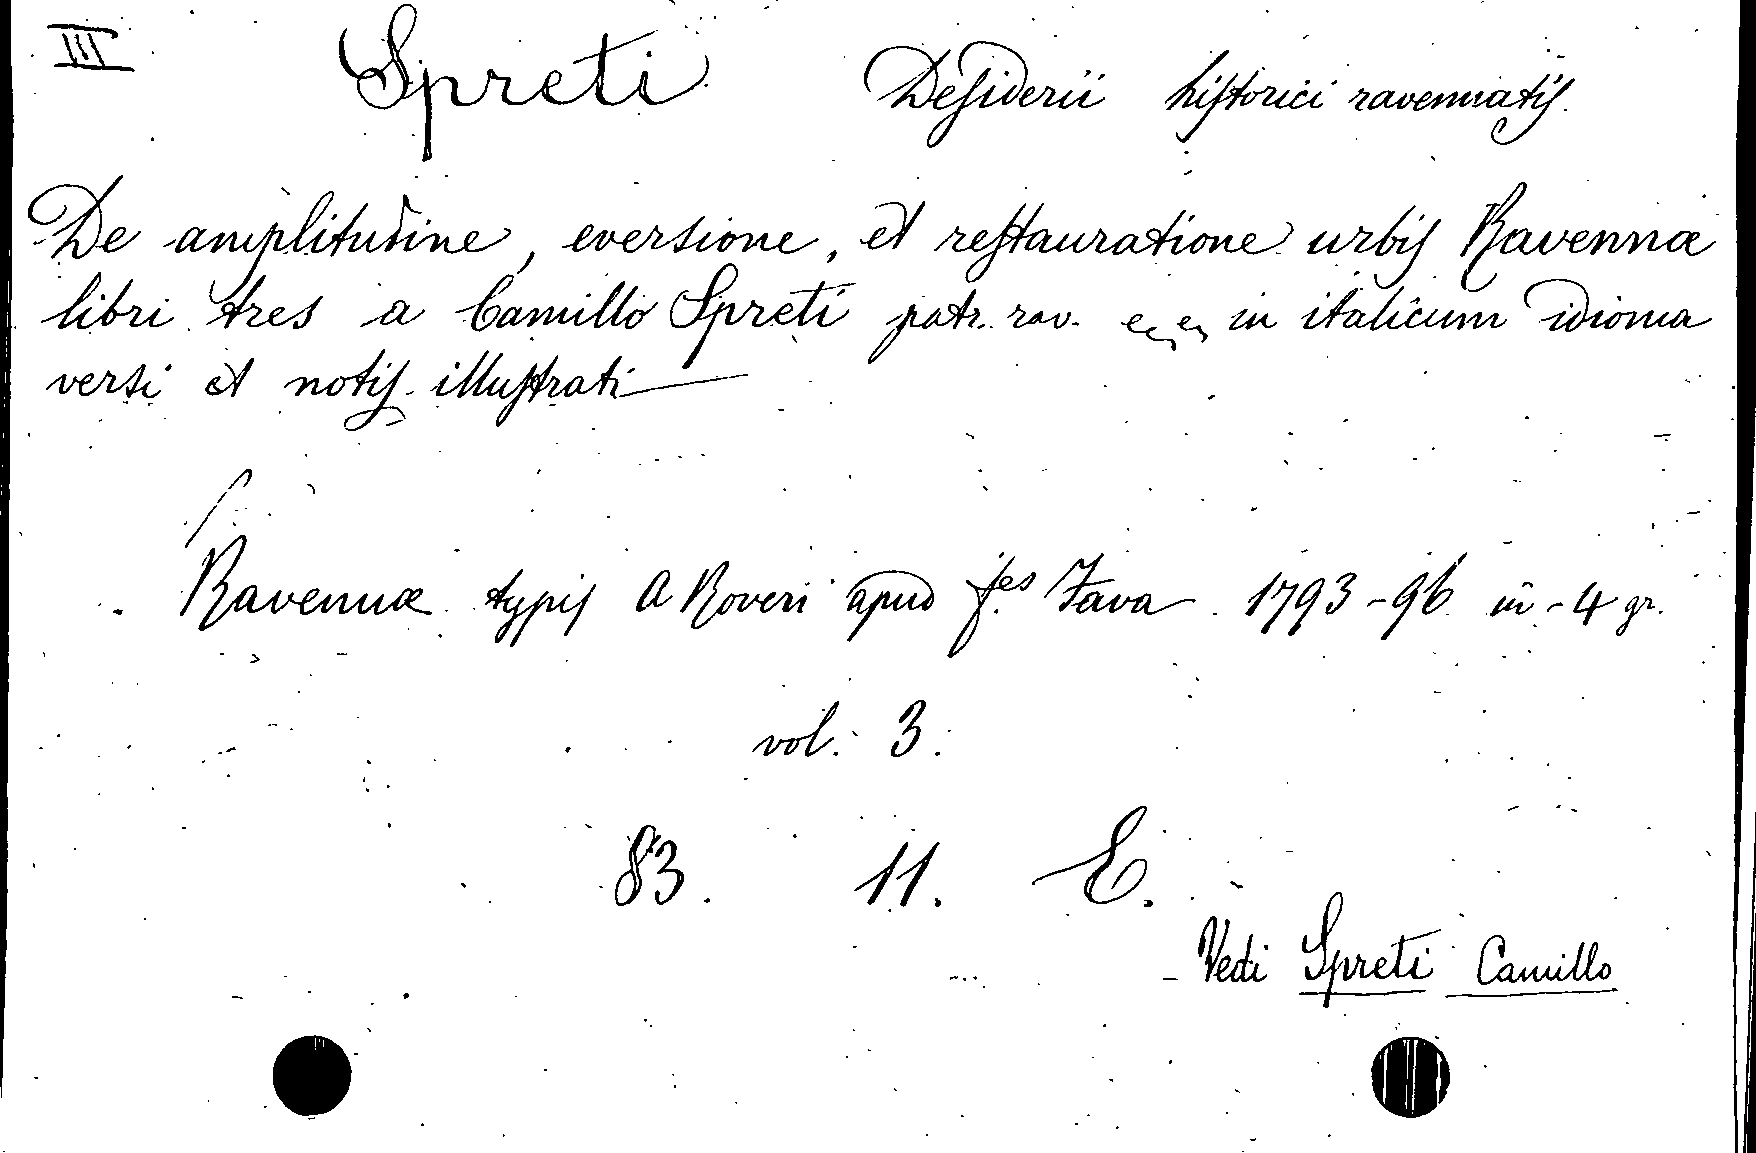 III Spreti Desiderii historici ravennatis.
De amplitudine, eversione, et restauratione urbis Ravennæ
libri tres a Camillo Spreti patr. rav. in italicum idioma
versi et notis illustrati
Ravennæ typis A Roveri apud f.es 1793-96 in-4 gr.
vol. 3.
83. 11. E.
Vedi Spreti Camillo